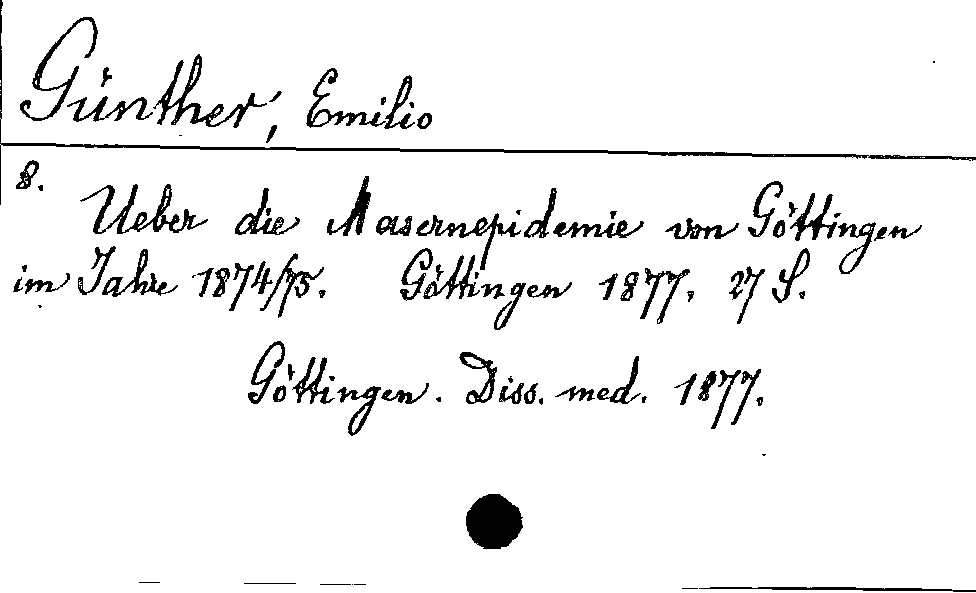 Günther, Emilio
8.
Ueber die Masernepidemie von Göttingen
im Jahre 1874/75. Göttingen 1877. 27 S.
Göttingen. Diss. med. 1877.